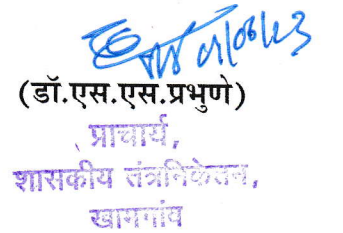 (डॉ.एस.एस.प्रभुणे)
प्राचार्य,
शासकीय तंत्रनिकेतन,
खामगांव